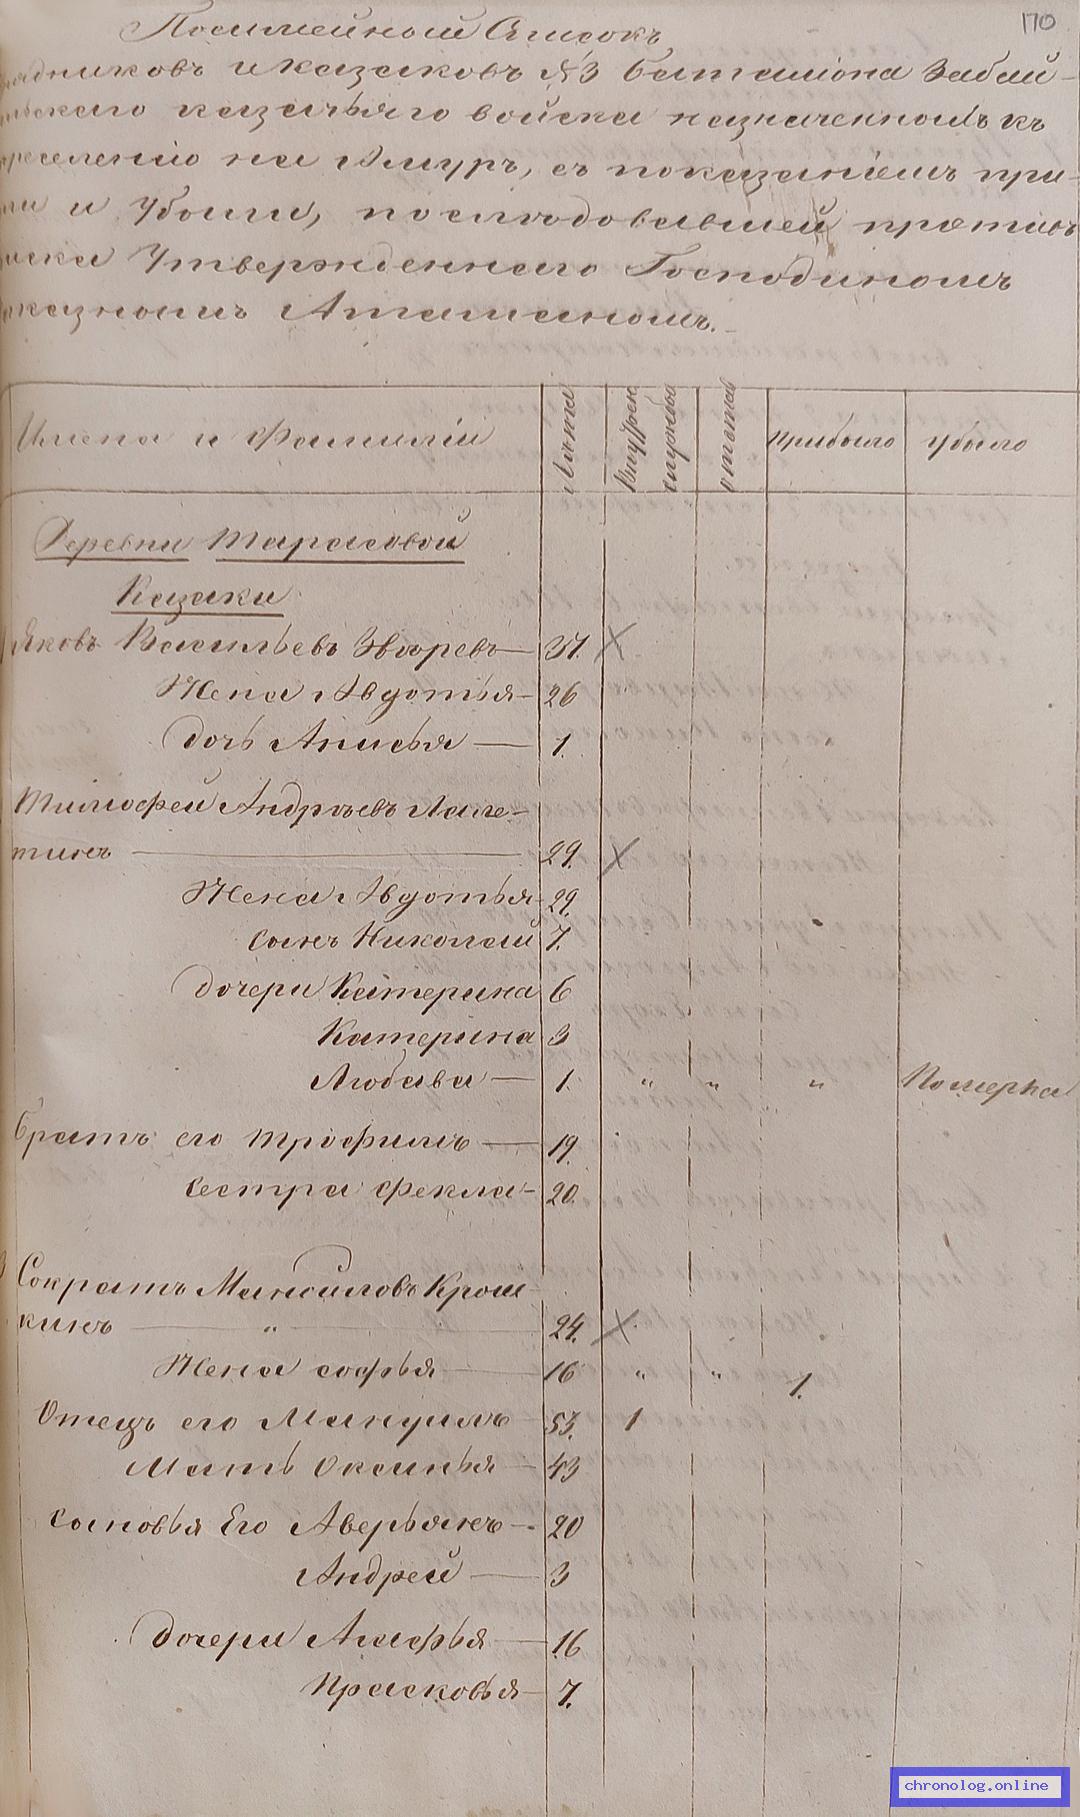 170
Посемейный Списокъ
рядниковъ и казаковъ №3 баталiона Забай-
льскаго казачьяго войска назначенномъ къ
реселенiю на Амуръ, съ показанiемъ при-
ли и убыли, последовавшей противъ
иска Утвержденнаго Господиномъ
аказномъ Атаманомъ.
Имена и Фамилiи
Лѣта
Внутрен службы
прибыло
убыло
Деревни Тарасовой
Казаки
Яковъ Васильевъ Звѣревъ 37.
Жена Авдотья 26
дочь Анисья 1.
Тимофей Андрѣевъ Лапе-
тинъ 29.
Жена Авдотья 29.
сынъ Николай 7.
дочери Катерина 6
Катерина 3
Любава 1. " " " Померла
братъ его Трофимъ 19.
сестра Фекла 20.
Сократъ Мануиловъ Крош-
кинъ " 24.
Жена софья 16 " " 1.
Отецъ его Мануилъ 53. 1
Мать Оксинья 43
сыновья Его Аверьянъ 20
Андрей 3
дочери Агафья 16
Прасковья 7.
chronolog.online